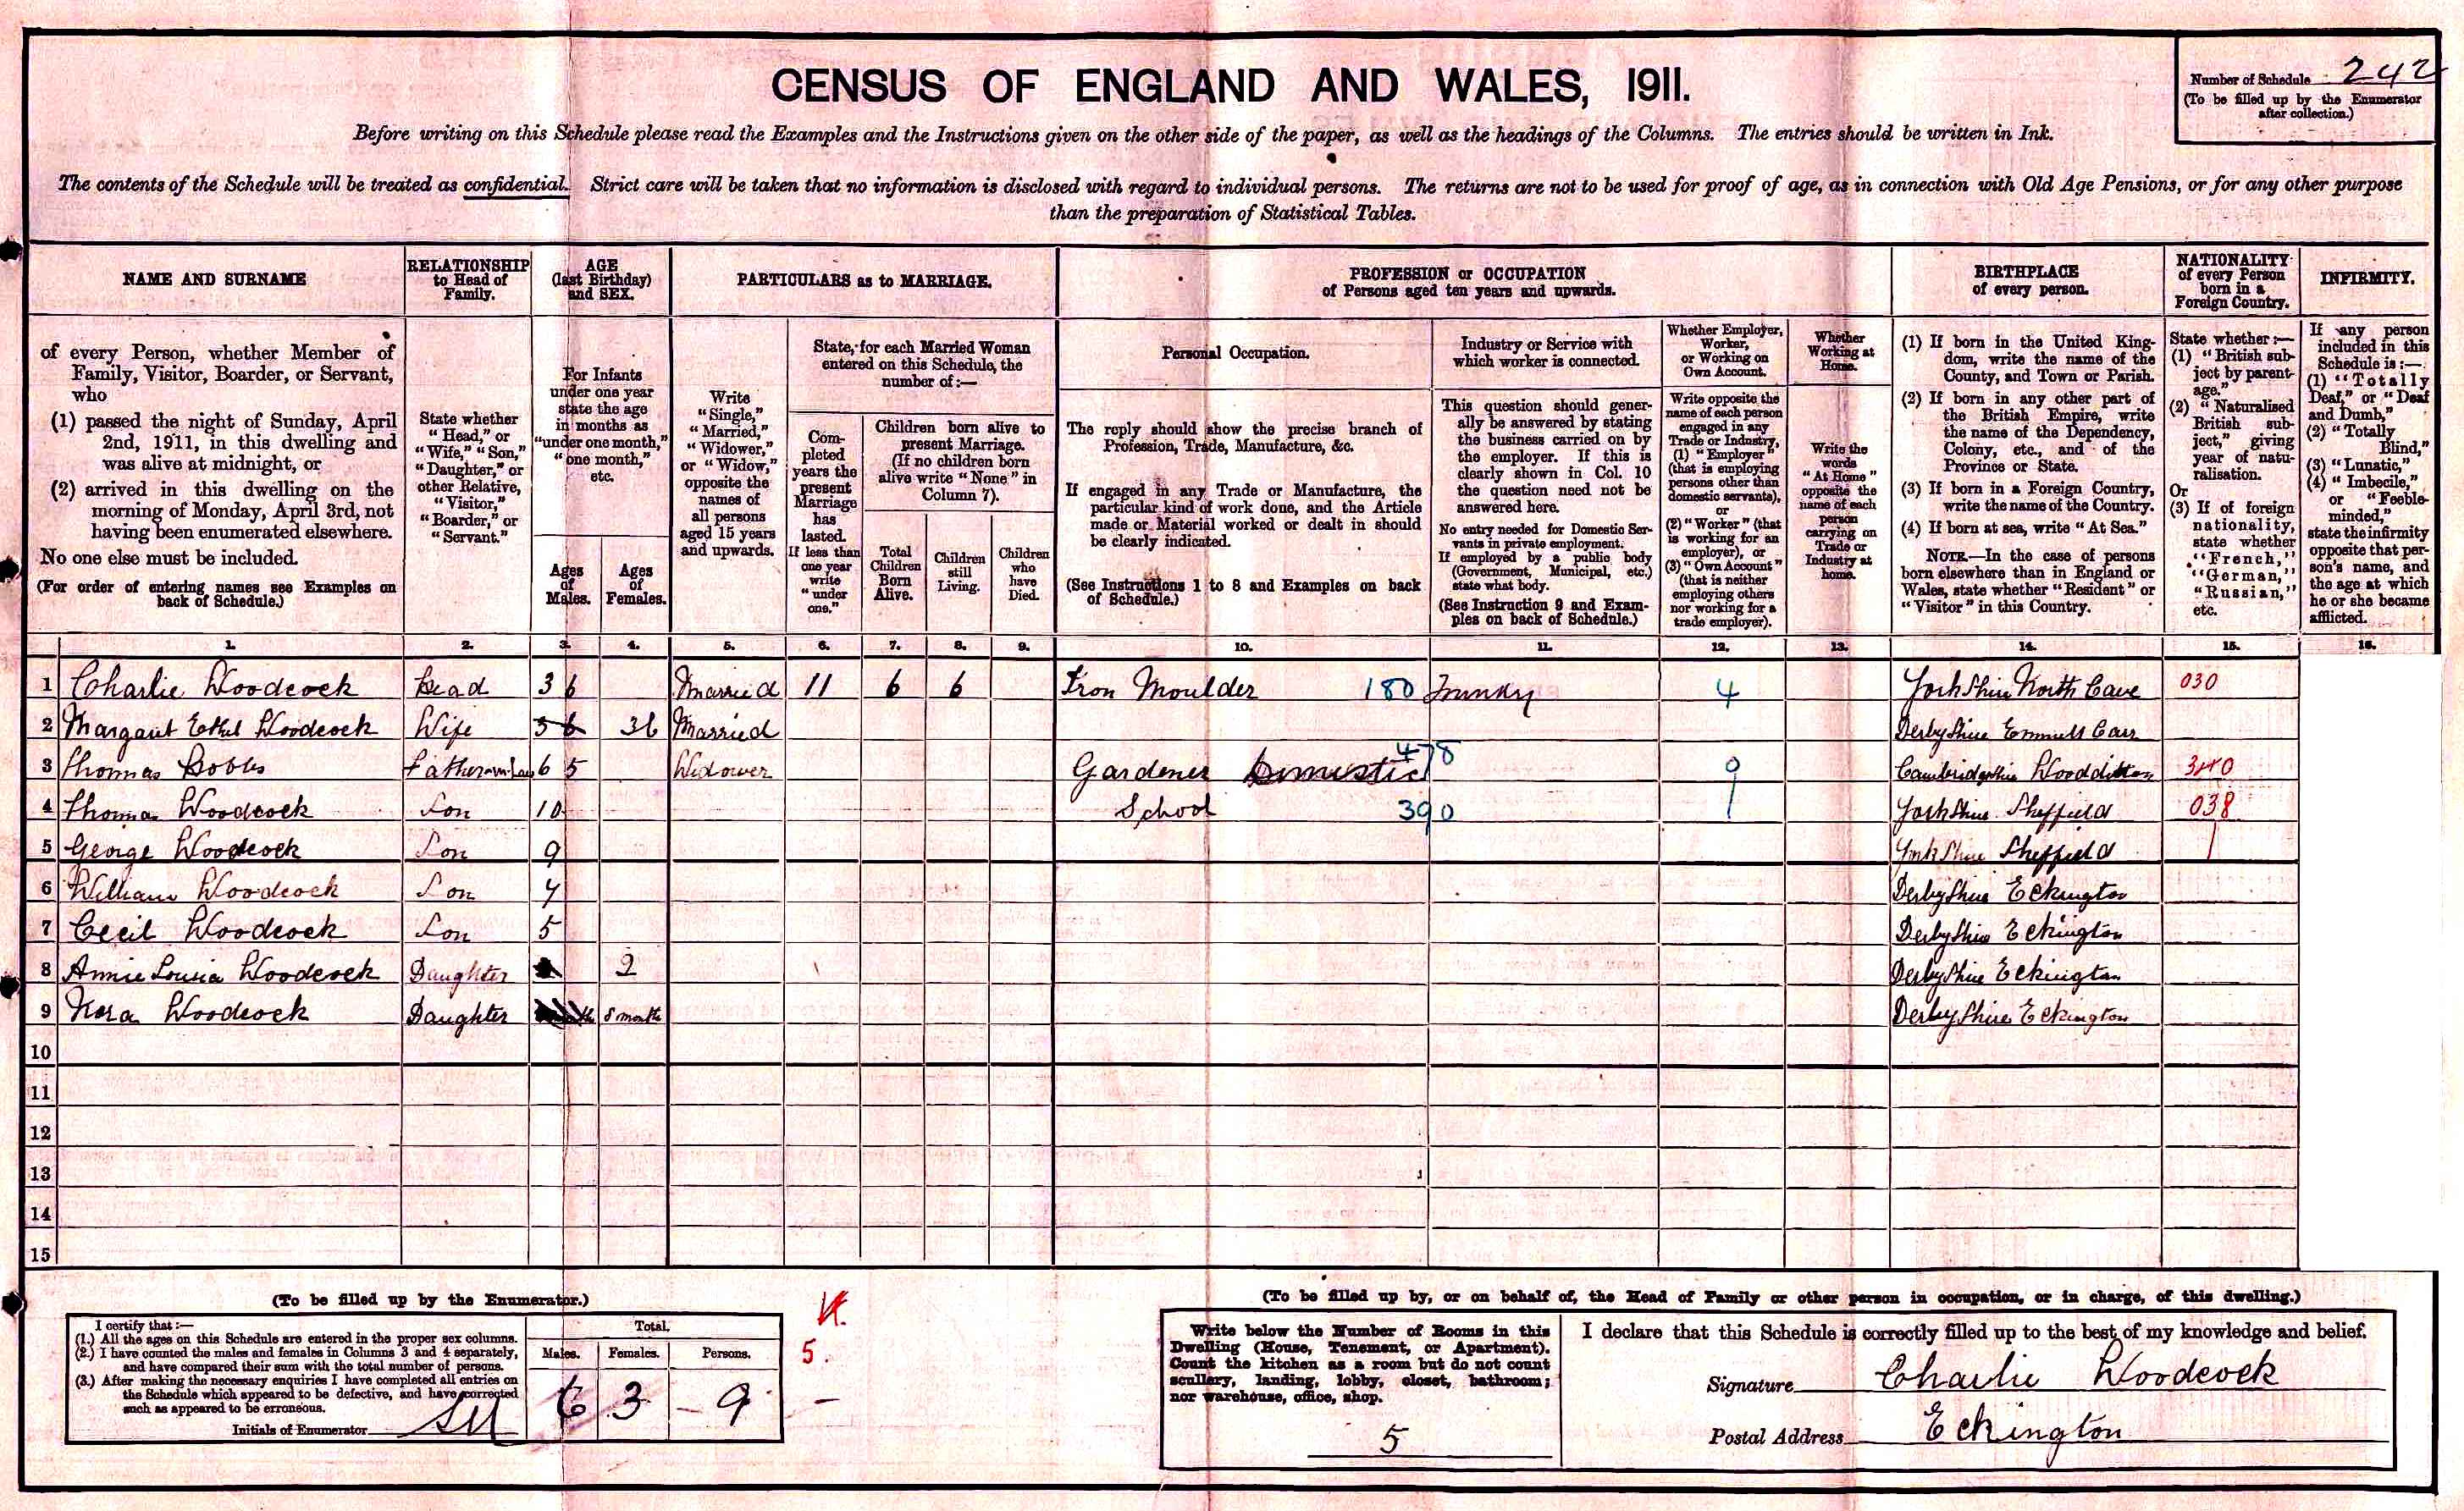 CENSUS OF ENGLAND AND WALES, 1911.
Number of Schedule 242
(To be filled up by the Enumerator
after collection.)
Before writing on this Schedule please read the Examples and the Instructions given on the other side of the paper, as well as the headings of the Columns. The entries should be written in Ink.
The contents of the Schedule will be treated as confidential. Strict care will be taken that no information is disclosed with regard to individual persons. The returns are not to be used for proof of age, as in connection with Old Age Pensions, or for any other purpose
than the preparation of Statistical Tables.
NAME AND SURNAME
of every Person, whether Member of
Family, Visitor, Boarder, or Servant,
who
(1) passed the night of Sunday, April
2nd, 1911, in this dwelling and
was alive at midnight, or
(2) arrived in this dwelling on the
morning of Monday, April 3rd, not
having been enumerated elsewhere.
No one else must be included.
(For order of entering names see Examples on
back of Schedule.)
RELATIONSHIP
to Head of
Family.
State whether
"Head," or
"Wife," "Son,"
"Daughter," or
other Relative,
"Visitor,"
"Boarder," or
"Servant."
AGE
(last Birthday)
and SEX.
For Infants
under one year
state the age
in months as
"under one month,"
"one month,"
etc.
Ages
of
Males.
Ages
of
Females.
PARTICULARS as to MARRIAGE.
Write
"Single,"
"Married,"
"Widower,"
or "Widow,"
opposite the
names of
all persons
aged 15 years
and upwards.
State, for each Married Woman
entered on this Schedule, the
number of:—
Com-
pleted
years the
present
Marriage
has
lasted.
If less than
one year
write
"under
one."
Children born alive to
present Marriage.
(If no children born
alive write "None" in
Column 7).
Total
Children
Born
Alive.
Children
still
Living.
Children
who
have
Died.
PROFESSION or OCCUPATION
of Persons aged ten years and upwards.
Personal Occupation.
The reply should show the precise branch of
Profession, Trade, Manufacture, &c.
If engaged in any Trade or Manufacture, the
particular kind of work done, and the Article
made or Material worked or dealt in should
be clearly indicated.
(See Instructions 1 to 8 and Examples on back
of Schedule.)
Industry or Service with
which worker is connected.
This question should gener-
ally be answered by stating
the business carried on by
the employer. If this is
clearly shown in Col. 10
the question need not be
answered here.
No entry needed for Domestic Ser-
vants in private employment.
If employed by a public body
(Government, Municipal, etc.)
state what body.
(See Instruction 9 and Exam-
ples on back of Schedule.)
Whether Employer,
Worker,
or Working on
Own Account.
Write opposite the
name of each person
engaged in any
Trade or Industry,
(1) "Employer"
(that is employing
persons other than
domestic servants),
or
(2) "Worker" (that
is working for an
employer), or
(3) "Own Account"
(that is neither
employing others
nor working for a
trade employer).
Whether
Working at
Home.
Write the
words
"At Home"
opposite the
name of each
person
carrying on
Trade or
Industry at
home.
BIRTHPLACE
of every person.
(1) If born in the United King-
dom, write the name of the
County, and Town or Parish.
(2) If born in any other part of
the British Empire, write
the name of the Dependency,
Colony, etc., and of the
Province or State.
(3) If born in a Foreign Country,
write the name of the Country.
(4) If born at sea, write "At Sea."
NOTE.—In the case of persons
born elsewhere than in England or
Wales, state whether "Resident" or
"Visitor" in this Country.
NATIONALITY
of every Person
born in a
Foreign Country.
State whether:—
(1) "British sub-
ject by parent-
age."
(2) "Naturalised
British sub-
ject," giving
year of natu-
ralisation.
Or
(3) If of foreign
nationality,
state whether
"French,"
"German,"
"Russian,"
etc.
INFIRMITY.
If any person
included in this
Schedule is:—
(1) "Totally
Deaf," or "Deaf
and Dumb,"
(2) "Totally
Blind,"
(3) "Lunatic,"
(4) "Imbecile,"
or "Feeble-
minded,"
state the infirmity
opposite that per-
son's name, and
the age at which
he or she became
afflicted.
1. 2. 3. 4. 5. 6. 7. 8. 9. 10. 11. 12. 13. 14. 15. 16.
1 Charlie Woodcock Head 36 Married 11 6 6 Iron Moulder 180 4 Yorkshire North Cave 030
2 Margaret Ethel Woodcock Wife 36 36 Married Derbyshire Carr
3 Thomas Father in Law 65 Widower Gardener Domestic 478 9 Cambridgeshire Woodditton
4 Thomas Woodcock Son 10 School 390 Yorkshire Sheffield 038
5 George Woodcock Son 9 Yorkshire Sheffield
6 William Woodcock Son 7 Derbyshire Eckington
7 Cecil Woodcock Son 5 Derbyshire Eckington
8 Annie Louisa Woodcock Daughter 2 Derbyshire Eckington
9 Nora Woodcock Daughter 8 month Derbyshire Eckington
10
11
12
13
14
15
(To be filled up by the Enumerator.)
I certify that:—
(1.) All the ages on this Schedule are entered in the proper sex columns.
(2.) I have counted the males and females in Columns 3 and 4 separately,
and have compared their sum with the total number of persons.
(3.) After making the necessary enquiries I have completed all entries on
the Schedule which appeared to be defective, and have corrected
such as appeared to be erroneous.
Initials of Enumerator
Total.
Males. Females. Persons.
6 3 9
5.
(To be filled up by, or on behalf of, the Head of Family or other person in occupation, or in charge, of this dwelling.)
Write below the Number of Rooms in this
Dwelling (House, Tenement, or Apartment).
Count the kitchen as a room but do not count
scullery, landing, lobby, closet, bathroom;
nor warehouse, office, shop.
5
I declare that this Schedule is correctly filled up to the best of my knowledge and belief.
Signature Charlie Woodcock
Postal Address Eckington